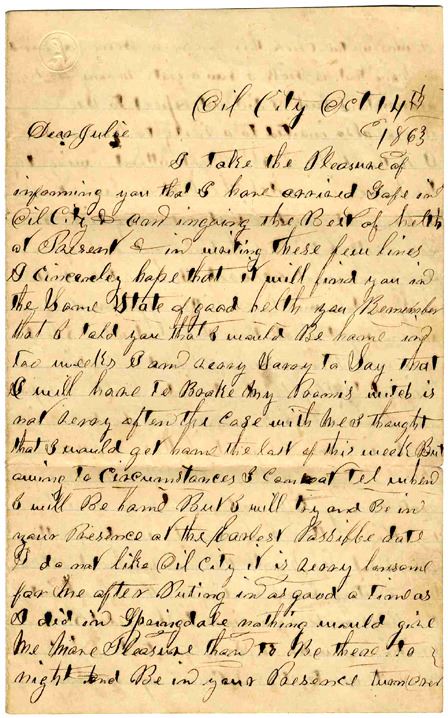 Oil City Oct 14th
Dear Julie 1863
I take the Pleasure of
informing you that I have arrived Safe in
Oil City & am injoying the Best of helth
at Preasent & in writing these few lines
I Cincereley hope that it will find you in
the Same State of good helth you Remember
that I told you that I would Be home in
two weeks I am verry Sorry to Say that
I will have to Brake my Promis witch is
not verry often the Case with me I thought
that I would get home the last of this week But
owing to Circumstances I Can not Tel when
I will Be home But I will try and Be in
your Presence at the Earlest Possible date
I do not like Oil City it is verry lonsome
for me after Puting in as good a time as
I did in Springdale nothing would give
me more Pleasure than to Be there to
night and Be in your Presence turn over